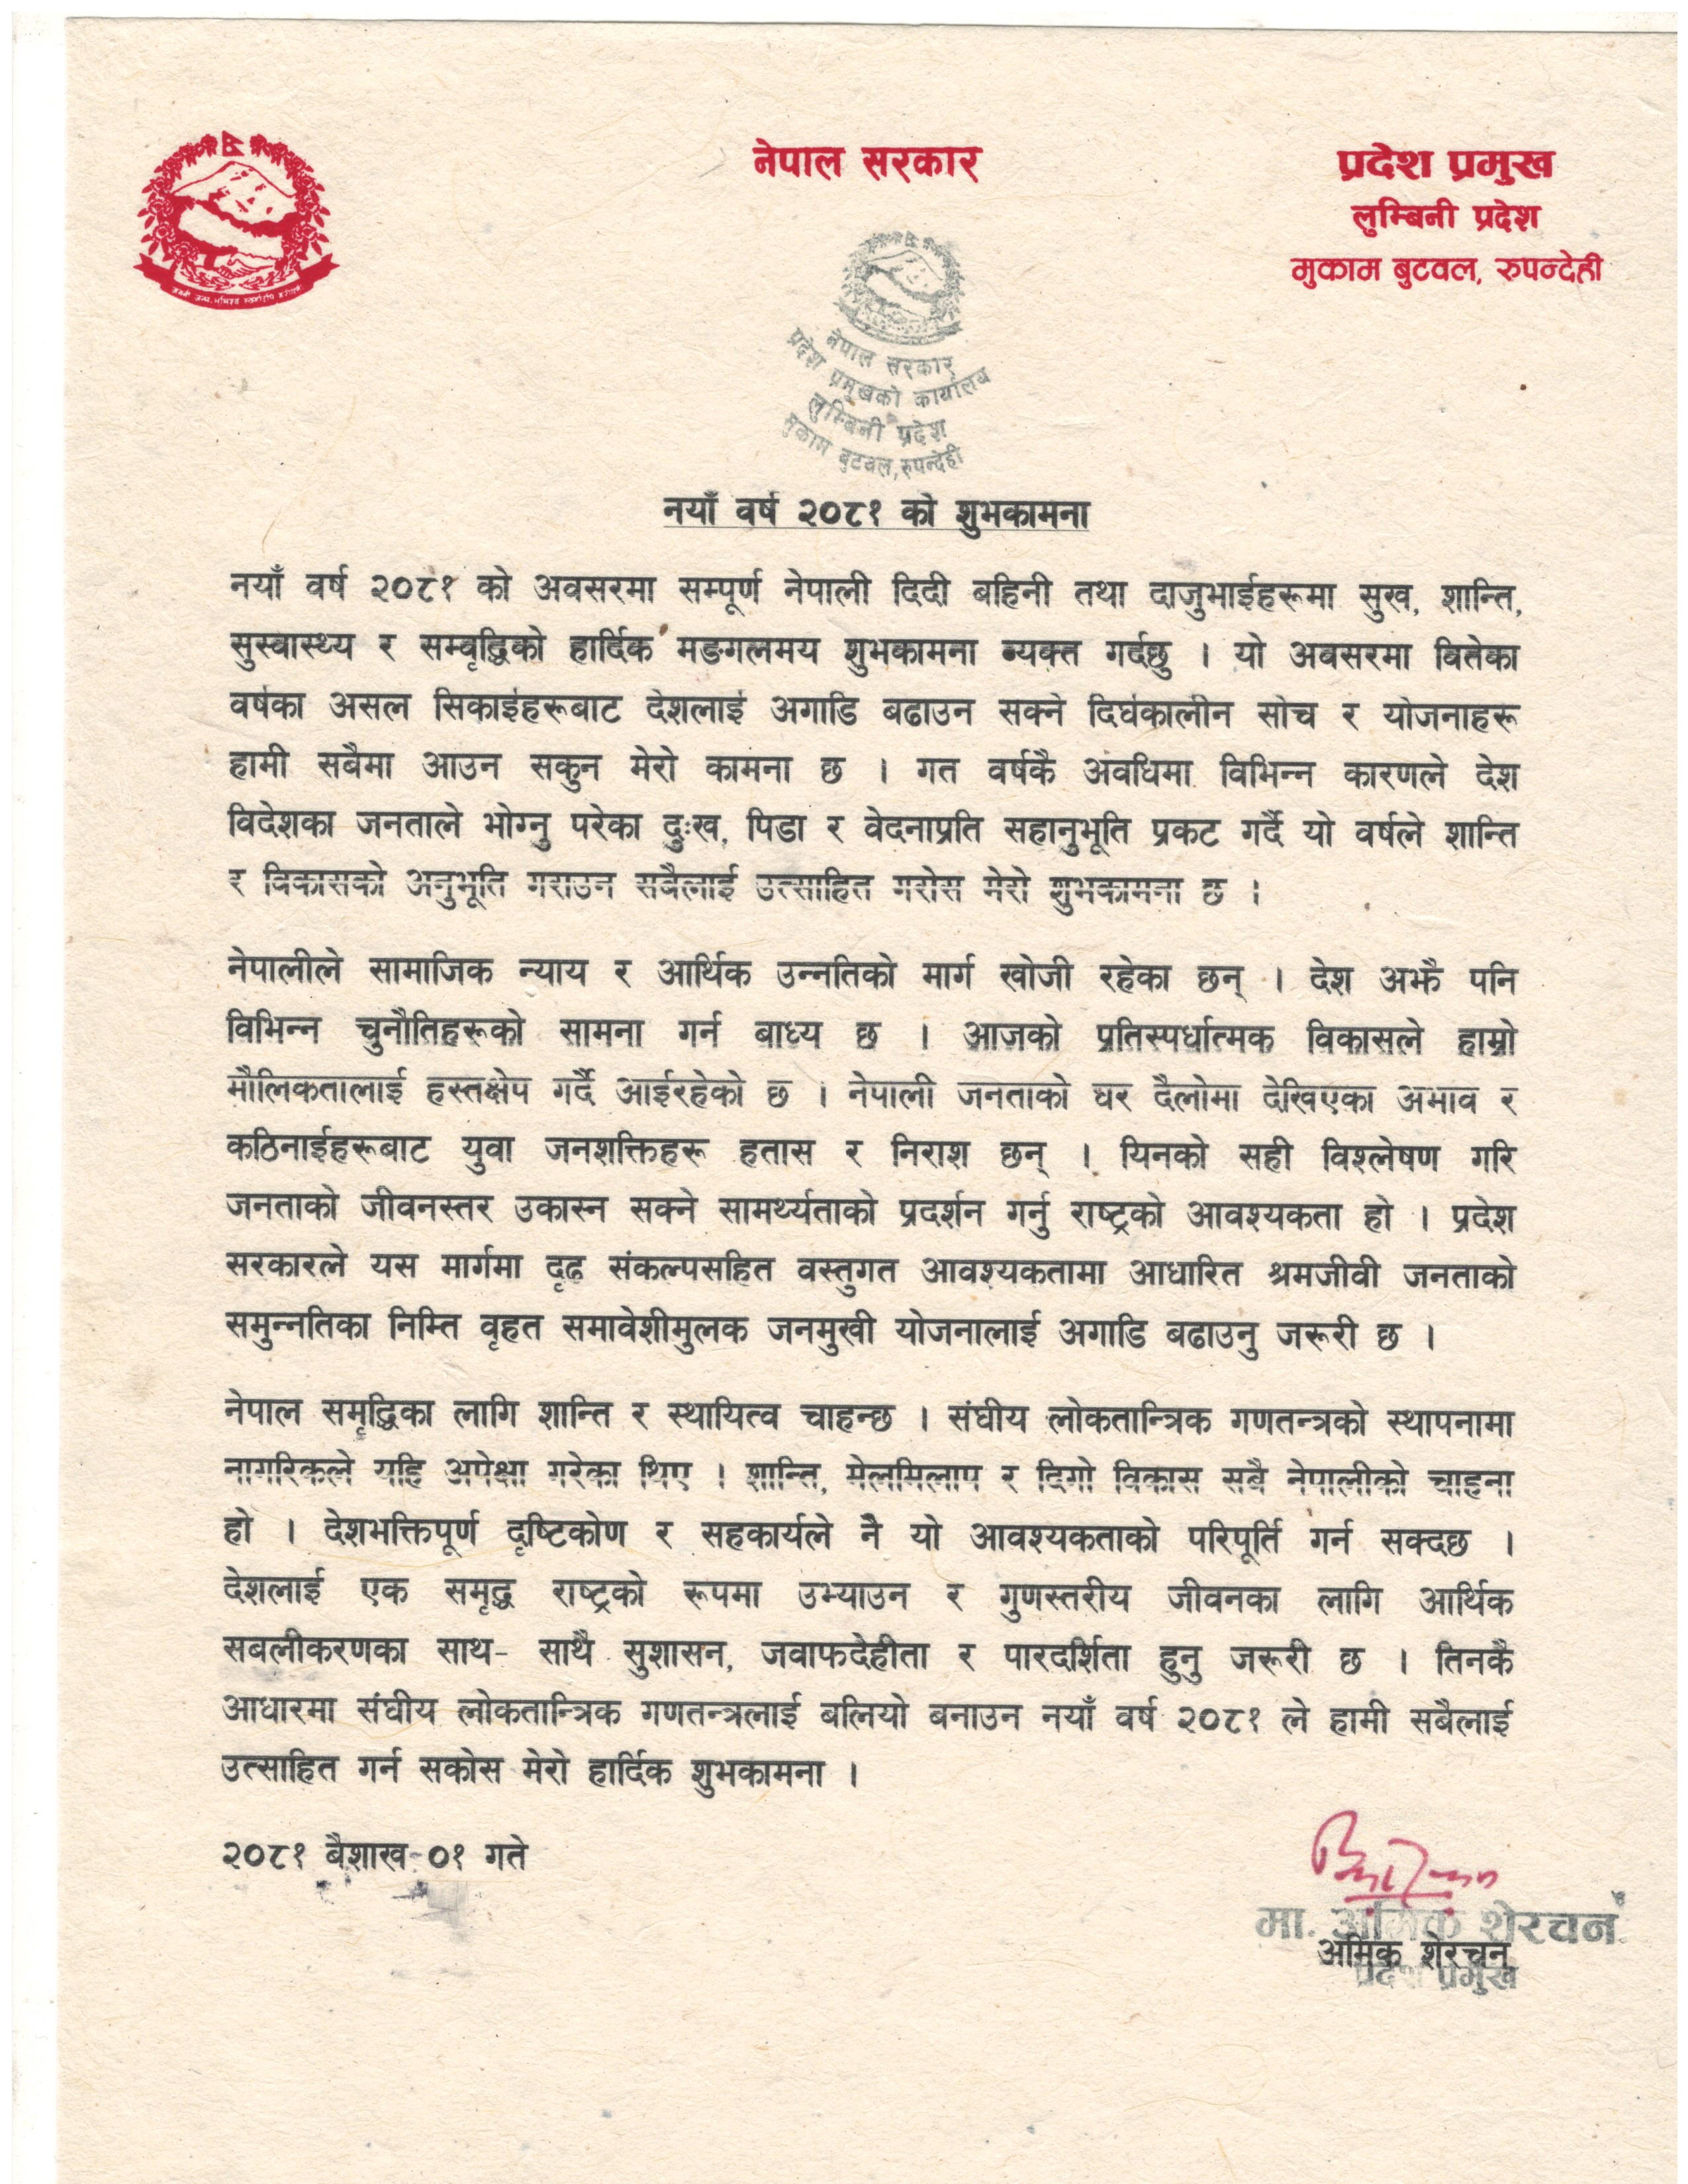 नेपाल सरकार
प्रदेश प्रमुख
लुम्बिनी प्रदेश
मुकाम बुटवल, रुपन्देही
नेपाल सरकार
प्रदेश प्रमुखको कार्यालय
लुम्बिनी प्रदेश
मुकाम बुटवल, रुपन्देही
नयाँ वर्ष २०८१ को शुभकामना
नयाँ वर्ष २०८१ को अवसरमा सम्पूर्ण नेपाली दिदी बहिनी तथा दाजुभाईहरूमा सुख, शान्ति,
सुस्वास्थ्य र सम्वृद्धिको हार्दिक मङगलमय शुभकामना व्यक्त गर्दछु । यो अवसरमा वितेका
वर्षका असल सिकाईहरूबाट देशलाई अगाडि बढाउन सक्ने दिर्घकालीन सोच र योजनाहरू
हामी सबैमा आउन सकुन मेरो कामना छ । गत वर्षकै अवधिमा विभिन्न कारणले देश
विदेशका जनताले भोग्नु परेका दुःख, पिडा र वेदनाप्रति सहानुभूति प्रकट गर्दै यो वर्षले शान्ति
र विकासको अनुभूति गराउन सबैलाई उत्साहित गरोस मेरो शुभकामना छ ।
नेपालीले सामाजिक न्याय र आर्थिक उन्नतिको मार्ग खोजी रहेका छन् । देश अझै पनि
विभिन्न चुनौतिहरूको सामना गर्न बाध्य छ । आजको प्रतिस्पर्धात्मक विकासले हाम्रो
मौलिकतालाई हस्तक्षेप गर्दै आईरहेको छ । नेपाली जनताको घर दैलोमा देखिएका अभाव र
कठिनाईहरूबाट युवा जनशक्तिहरू हतास र निराश छन् । यिनको सही विश्लेषण गरि
जनताको जीवनस्तर उकास्न सक्ने सामर्थ्यताको प्रदर्शन गर्नु राष्ट्रको आवश्यकता हो । प्रदेश
सरकारले यस मार्गमा दृढ संकल्पसहित वस्तुगत आवश्यकतामा आधारित श्रमजीवी जनताको
समुन्नतिका निम्ति वृहत समावेशीमुलक जनमुखी योजनालाई अगाडि बढाउनु जरूरी छ ।
नेपाल समृद्धिका लागि शान्ति र स्थायित्व चाहन्छ । संघीय लोकतान्त्रिक गणतन्त्रको स्थापनामा
नागरिकले यहि अपेक्षा गरेका थिए । शान्ति, मेलमिलाप र दिगो विकास सबै नेपालीको चाहना
हो । देशभक्तिपूर्ण दृष्टिकोण र सहकार्यले नै यो आवश्यकताको परिपूर्ति गर्न सक्दछ ।
देशलाई एक समृद्ध राष्ट्रको रूपमा उभ्याउन र गुणस्तरीय जीवनका लागि आर्थिक
सबलीकरणका साथ- साथै सुशासन, जवाफदेहीता र पारदर्शिता हुनु जरूरी छ । तिनकै
आधारमा संघीय लोकतान्त्रिक गणतन्त्रलाई बलियो बनाउन नयाँ वर्ष २०८१ ले हामी सबैलाई
उत्साहित गर्न सकोस मेरो हार्दिक शुभकामना ।
२०८१ बैशाख ०१ गते
मा. अमिक शेरचन
अमिक शेरचन
प्रदेश प्रमुख